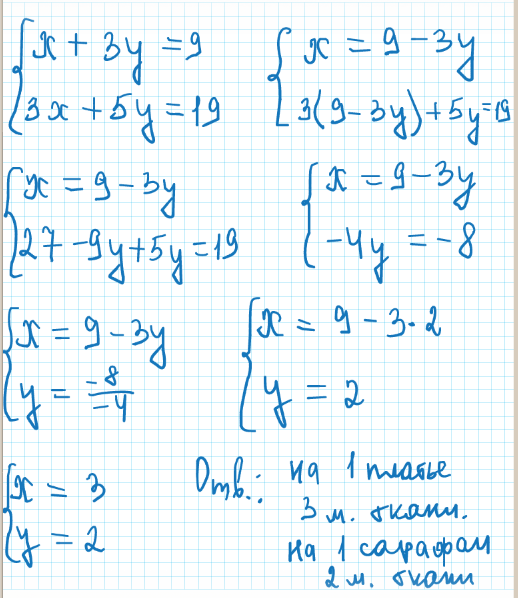 x + 3y = 9
3x + 5y = 19
x = 9 - 3y
3(9 - 3y) + 5y = 19
x = 9 - 3y
27 - 9y + 5y = 19
x = 9 - 3y
-4y = -8
x = 9 - 3y
y = -8/-4
x = 9 - 3·2
y = 2
x = 3
y = 2
Отв.: на 1 платье
3 м. ткани.
на 1 сарафан
2 м. ткани